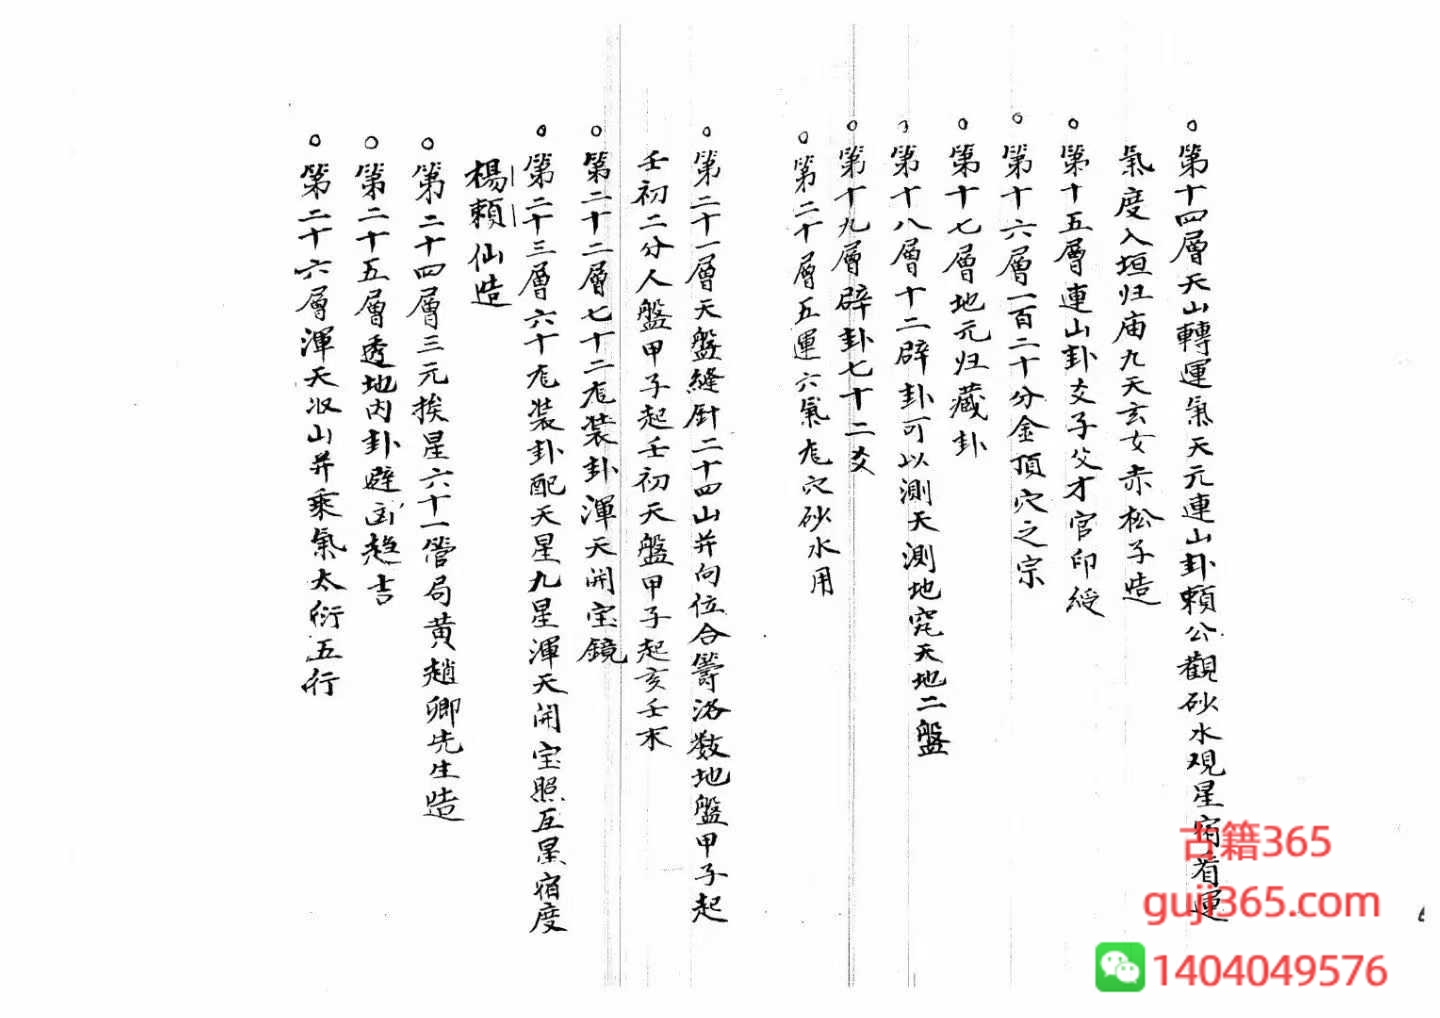 。第十四層天山轉運氣天元連山卦賴公觀砂水观星宿看運
氣度入垣归庙九天玄女赤松子造
。第十五層連山卦爻子父才官印綬
。第十六層一百二十分金頂穴之宗
。第十七層地元归藏卦
。第十八層十二辟卦可以測天測地究天地二盤
。第十九層辟卦七十二爻
。第二十層五運六氣龙穴砂水用
。第二十一層天盤縫针二十四山并向位合籌洛数地盤甲子起
壬初二分人盤甲子起壬初天盤甲子起亥壬末
。第二十二層七十二龙装卦渾天開宝鏡
。第二十三層六十龙装卦配天星九星渾天開宝照互星宿度
楊賴仙造
。第二十四層三元挨星六十一管局黄趙卿先生造
。第二十五層透地内卦避凶趋吉
。第二十六層渾天收山并乘氣太衍五行
古籍365
guji365.com
1404049576